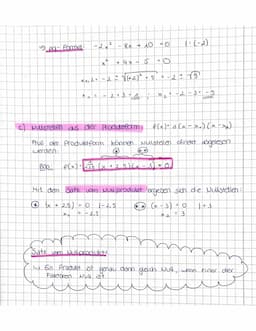 ↪ pq-Formel: -2x² - 8x + 10 = 0 | :(-2)
x² + 4x - 5 = 0
x₁,₂ = -2 ± √(+2)² + 5 = -2 ± √9
x₁ = -2 + 3 = 1 ; x₂ = -2 - 3 = -5
c) Nullstellen aus der Produktform: f(x) = a(x - x₁)(x - x₂)
Aus der Produktform können Nullstellen direkt abgelesen
werden.
Bsp. f(x) = (x + 2,5)(x - 3) = 0
Mit dem Satz vom Nullprodukt ergeben sich die Nullstellen:
(x + 2,5) = 0 |-2,5 (x - 3) = 0 |+3
x₁ = -2,5 x₂ = 3
Satz vom Nullprodukt:
↪ Ein Produkt ist genau dann gleich Null, wenn einer der
Faktoren Null ist.